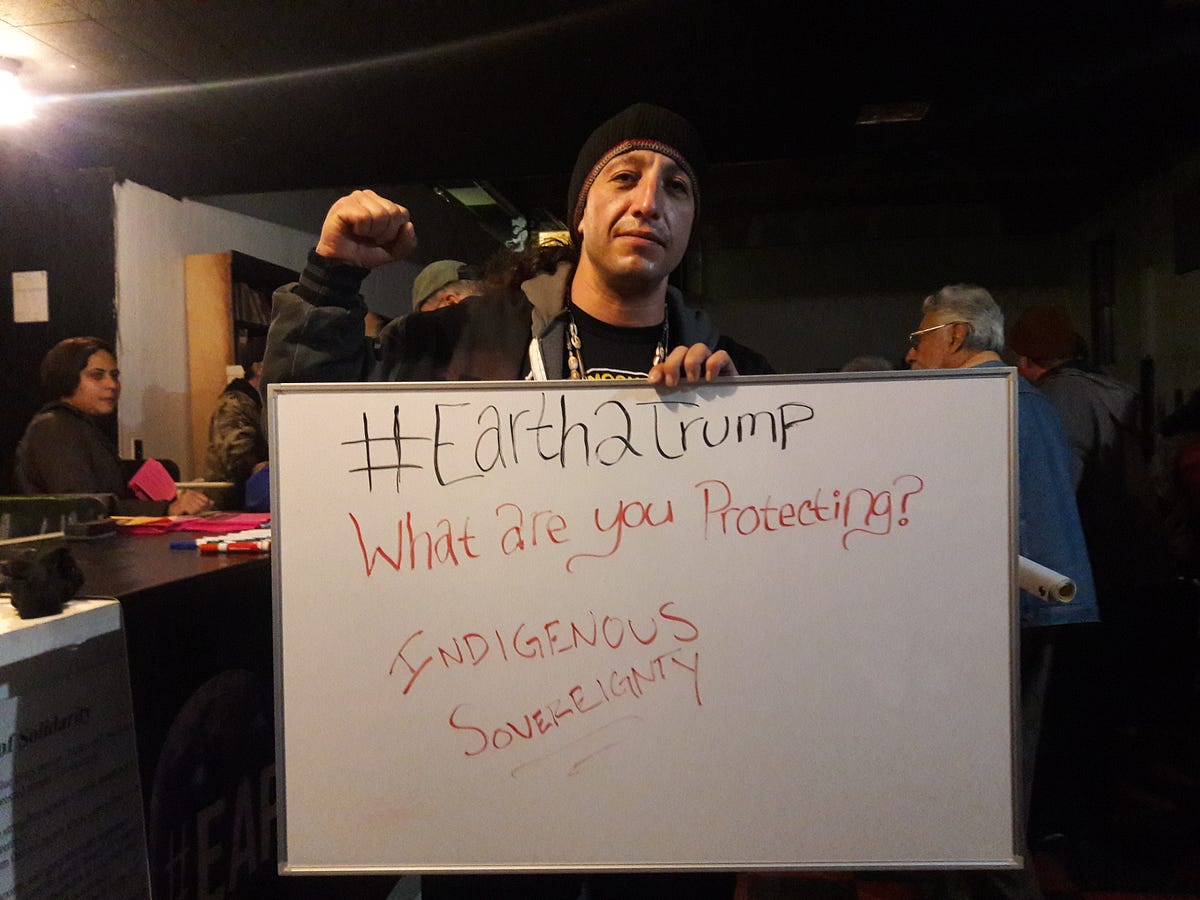 #Earth2Trump
What are you Protecting?
INDIGENOUS
SOVEREIGNTY
of Solidarity
#EAR